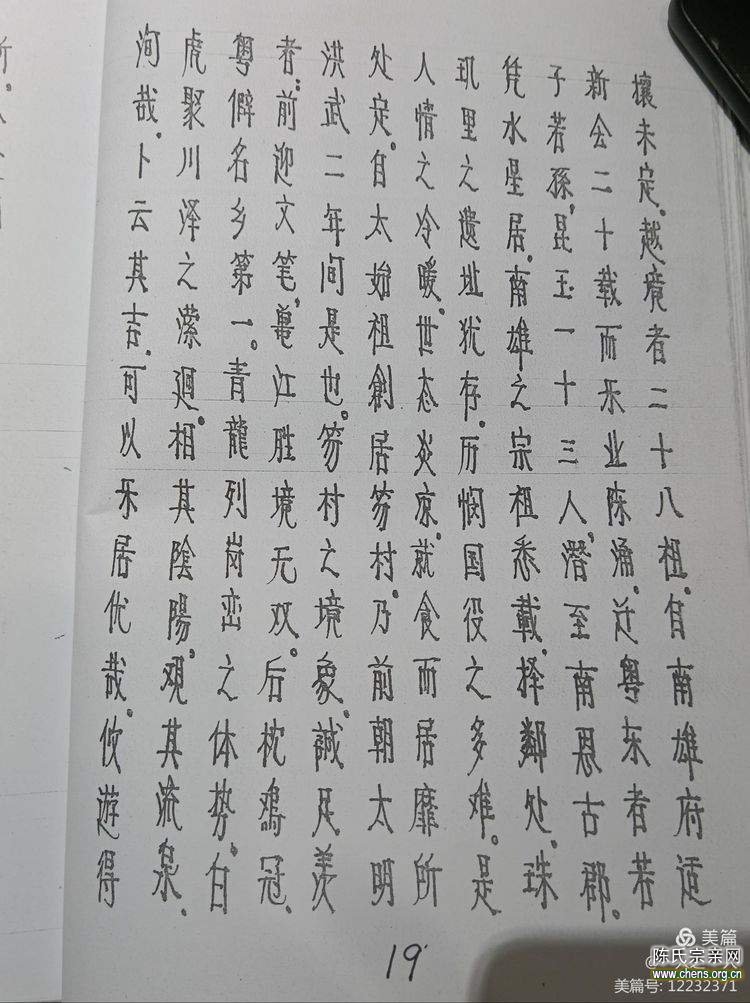 壤未定。越境者二十八祖。自南雄府适
新会二十载而乐业陈涌。迁粤东者若
子若孫，昆玉一十三人，潜至南恩古郡。
凭水星居。南雄之宗祖悉载。择鄰处。珠
玑里之遗址犹存。历悯国役之多难。是
人情之冷暖。世态炎凉。就食而居靡所
处定。自太始祖創居笏村。乃前朝太明
洪武二年间是也。笏村之境象。誠足羡
者：前迎文笔，黾江胜境无双。后枕鸡冠，
粤僻名乡第一。青龍列岗峦之体势。白
虎聚川泽之潆迴。相其陰陽，观其流泉，
洵哉。卜云其吉，可以乐居优哉。攸遊得
19
美篇
陈氏宗亲网
www.chens.org.cn
美篇号: 12232371